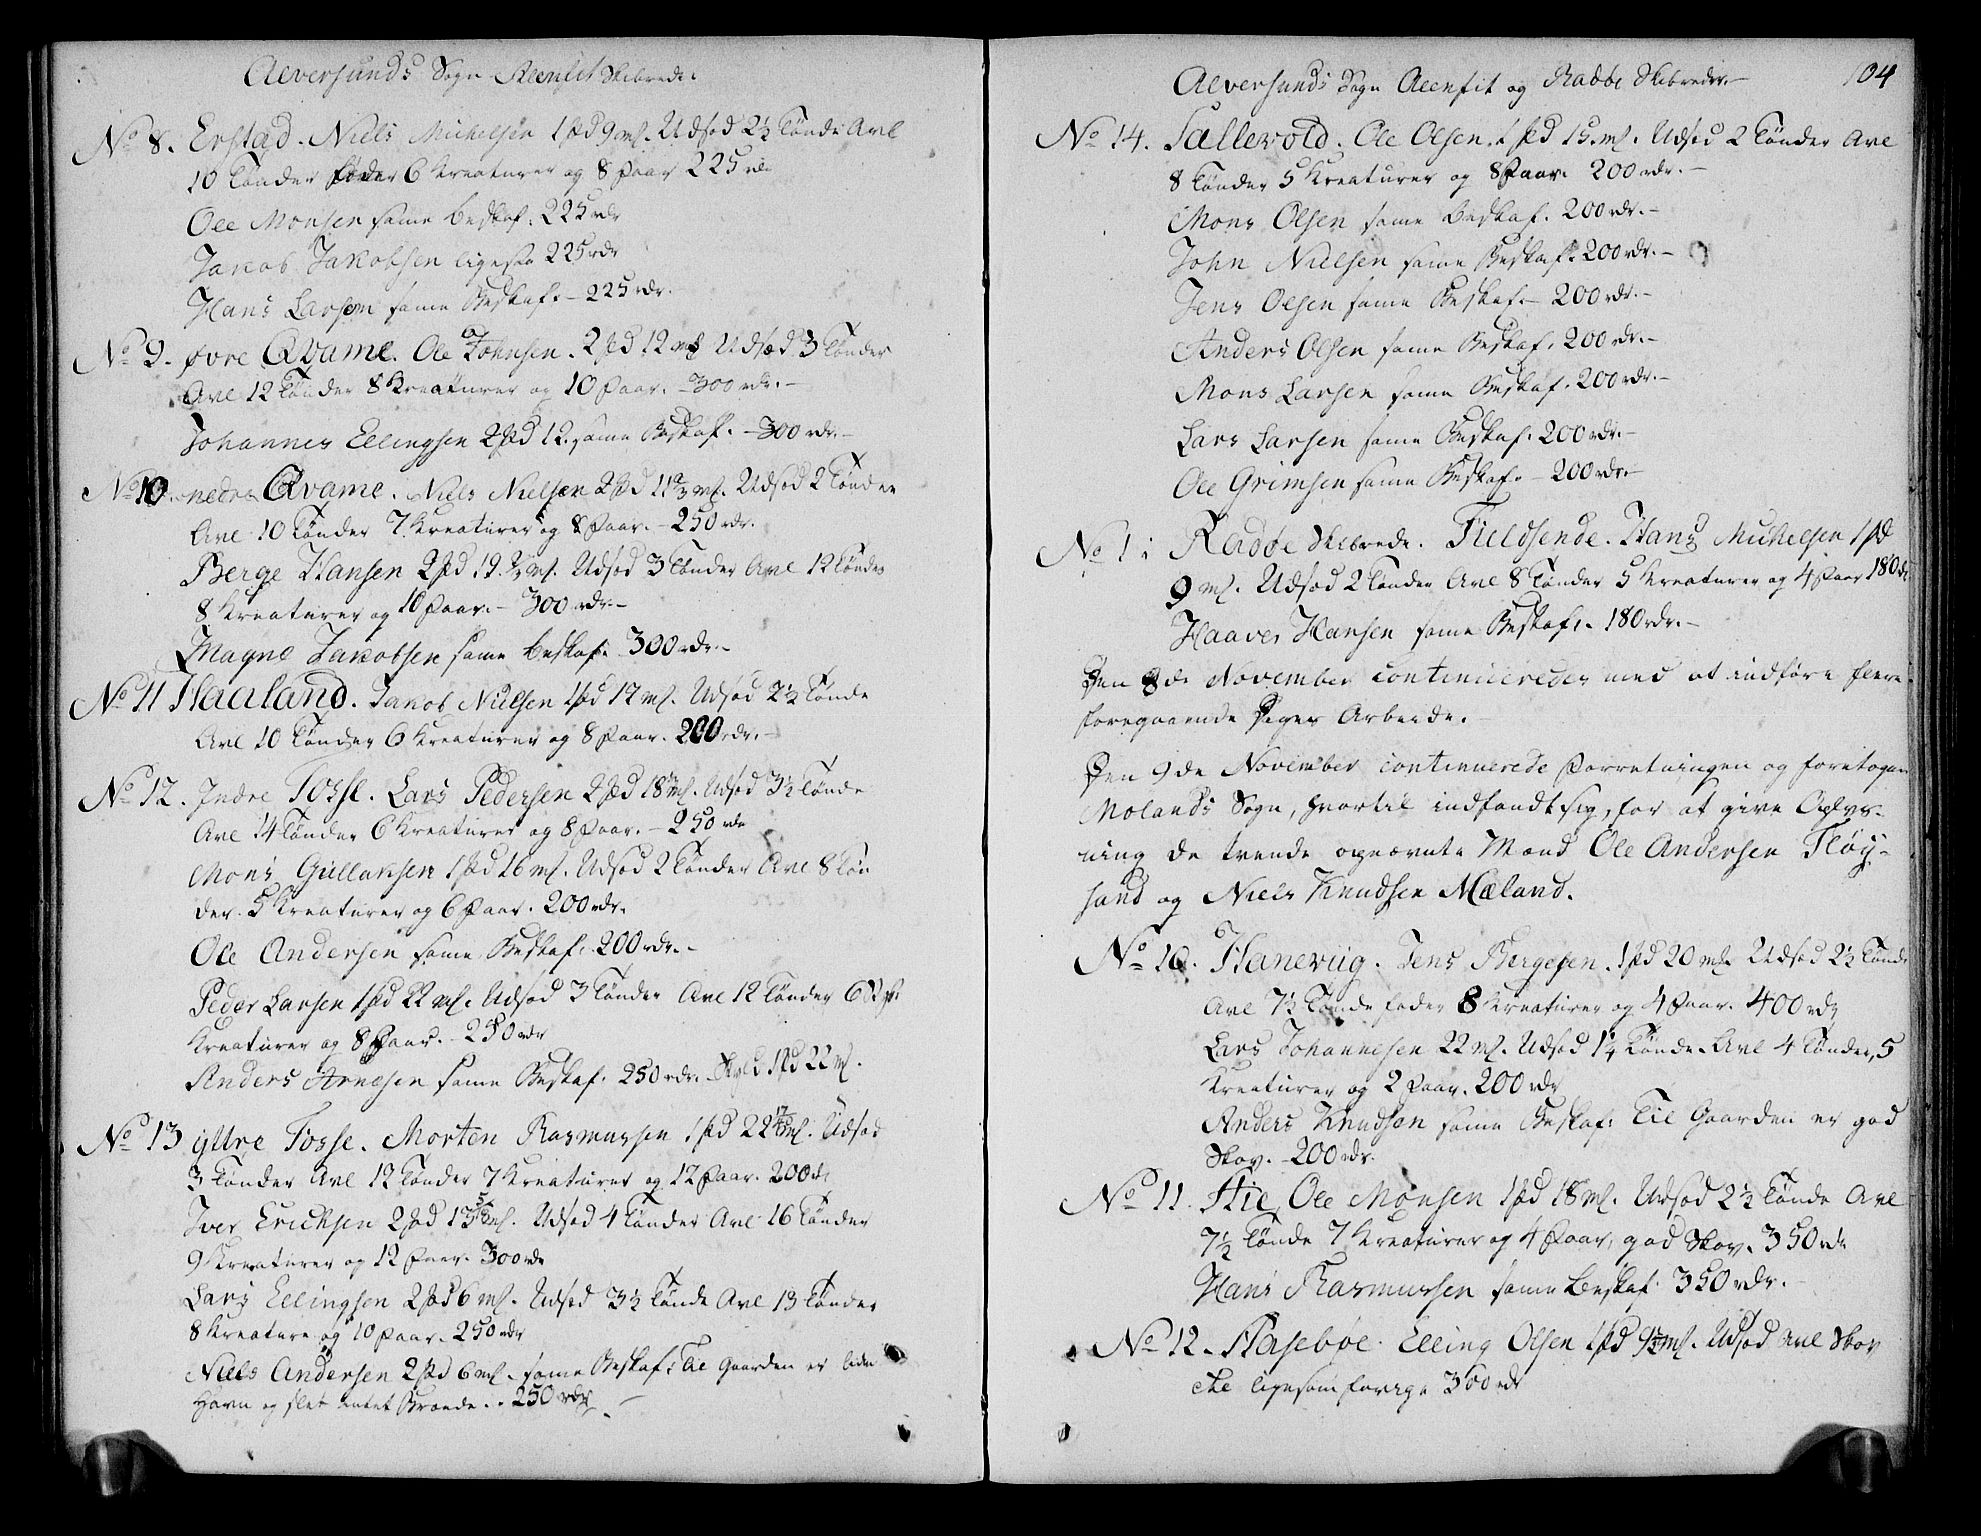 Alversunds Sogn Alenfit Skibrede.
No 8. Erstad. Niels Michelsen 1 pd 9 mk. Udsæd 2½ Tønde Avl
10 Tønder føder 6 Kreaturer og 8 Faar 225 rdr
Ole Monsen same beskaf. 225 rdr
Jacob Jakobsen ligesaa 225 rdr
Hans Larsen same Beskaf. - 225 rdr.
No 9. øvre Qvame. Ole Johnsen. 2 pd 12 mk Udsæd 3 Tønder
Avl 12 Tønder 8 Kreaturer og 10 Faar. - 300 rdr. -
Johannes Ellingsen 2 pd 12. same Beskaf. - 300 rdr. -
No 10. nedre Qvame. Niels Nielsen 2 pd 11⅔ mk. Udsæd 2 Tønder
Avl 10 Tønder 7 Kreaturer og 8 Faar. - 250 rdr.
Berge Hansen 2 pd 19 mk. Udsæd 3 Tønder Avl 12 Tønder
8 Kreaturer og 10 Faar. - 300 rdr. -
Magne Jakobsen same beskaf. 300 rdr. -
No 11 Haaland. Jakob Nielsen 1 pd 17 mk. Udsæd 2½ Tønde
Avl 10 Tønder 6 Kreaturer og 8 Faar. 200 rdr. -
No 12. Indre Fosse. Lars Pedersen 2 pd 18 mk. Udsæd 3½ Tønde
Avl 14 Tønder 6 Kreaturer og 8 Faar. - 250 rdr
Mons Gullaksen 1 pd 16 mk. Udsæd 2 Tønder Avl 8 Tøn
der. 5 Kreaturer og 6 Faar. 200 rdr.
Ole Andersen same Beskaf. 200 rdr. -
Peder Larsen 1 pd 22 mk. Udsæd 3 Tønder Avl 12 Tønder 6
Kreaturer og 8 Faar. - 250 rdr
Anders Arnesen same Beskaf. 250 rdr. Skyld 1 pd 22 mk.
No 13 yttre Fosse. Morten Rasmussen 1 pd 22 mk. Udsæd
3 Tønder Avl 12 Tønder 7 Kreaturer og 12 Faar. 200 rdr
Iver Erichsen 2 pd 13 mk. Udsæd 4 Tønder Avl 16 Tønder
9 Kreaturer og 12 Faar. 300 rdr
Lars Ellingsen 2 pd 6 mk. Udsæd 3½ Tønde Avl 13 Tønder
8 Kreature og 10 Faar. 250 rdr
Niels Andersen 2 pd 6 mk. same Beskaf. Til Gaarden er liden
Havn og slet intet Brænde. . 250 rdr
Alversunds Sogn Alenfit og Radøe Skibreder. -
104
No 14. Sællevold. Ole Olsen. 1 pd 15 mk. Udsæd 2 Tønder Avl
8 Tønder 5 Kreaturer og 8 Faar. 200 rdr. -
Mons Olsen same beskaf. 200 rdr. -
John Nielsen same Beskaf. 200 rdr. -
Jens Olsen same Beskaf. - 200 rdr. -
Anders Olsen same Beskaf. 200 rdr. -
Mons Larsen same Beskaf. 200 rdr. -
Lars Larsen same Beskaf. 200 rdr. -
Ole Grimsen same Beskaf. - 200 rdr. -
No 1: Radøe Skibrede. Fieldsende. Hans Michelsen 1 pd
9 mk. Udsæd 2 Tønder Avl 8 Tønder 5 Kreaturer og 4 Faar 180 rdr
Haaver Hansen same Beskaf. - 180 rdr. -
Den 8de November continueredes med at indføre flere
foregaaende Dages Arbeide. -
Den 9de November continuerede Forretningen og foretoges
Molands Sogn, hvortil indfandt sig, for at give Oplys-
ning de tvende opnævnte Mænd Ole Andersen Fløy-
sand og Niels Knudsen Mæland.
No 10. Hanevig. Jens Bergesen. 1 pd 20 mk Udsæd 2½ Tønde
Avl 7½ Tønde føder 8 Kreaturer og 4 Faar. 400 rdr
Lars Johannesen 22 mk. Udsæd 1¼ Tønde. Avl 4 Tønder, 5
Kreaturer og 2 Faar. 200 rdr
Anders Knudsen same Beskaf: Til Gaarden er god
Skov. - 200 rdr.
No 11. Hie. Ole Monsen 1 pd 18 mk. Udsæd 2½ Tønde Avl
7½ Tønde 7 Kreaturer og 4 Faar, god Skov. 350 rdr
Hans Rasmussen same beskaf. 350 rdr. -
No 12. Hasebøe. Elling Olsen 1 pd 9½ mk. Udsæd Avl Skov
etc ligesom forrige 300 rdr